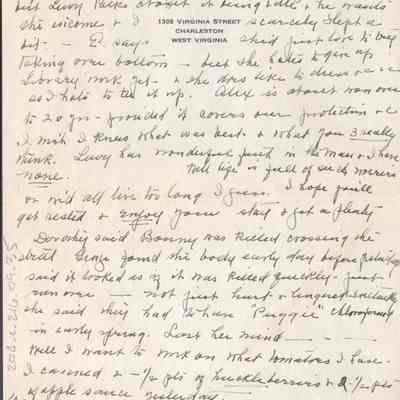 but Lucy Parks thought it being late & he wants
1308 VIRGINIA STREET
CHARLESTON
WEST VIRGINIA
the income & I scarcely slept a
bit - - E. says she'd just love to try
taking over bottom - but she hates to give up
Library work yet - & she does like to dress &c
so I hate to tie it up. Alex is about won over
to 20 yrs - provided it covers over protection &c
I wish I knew what was best. & what you 3 really
think. Lucy has wonderful faith in the man & I have
none. Well life is full of such worries
or we'd all live too long I guess. I hope you'll
get rested & enjoy your stay & get a plenty
Dorothy said Bonny was killed crossing the
street found the body early day before yesterday
said it looked as if it was killed quickly - just
run over - not just hurt & lingered
she said they had to have "Puggie" chloroformed
in early spring. Lost her mind - - -
Well I want to work on what tomatoes I have.
I canned 2 - 1/2 pts of huckleberries & 2 - 1/2 pts
of apple sauce yesterday -